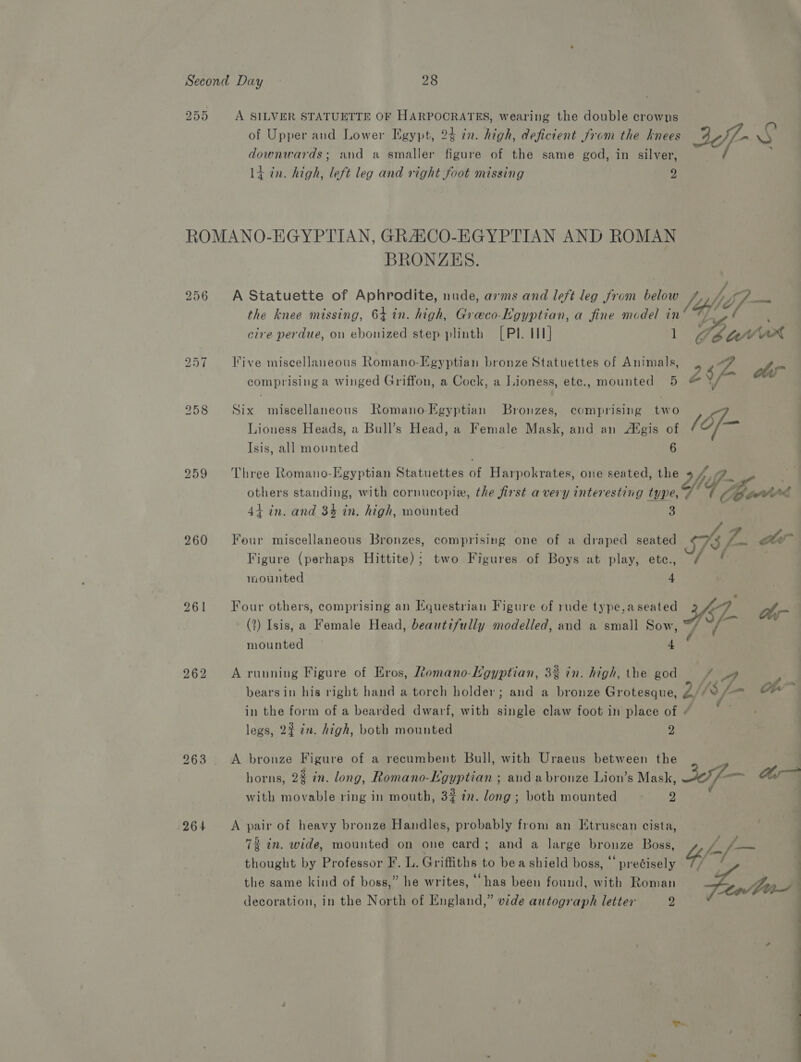 Second Day 28
255 A SILVER STATUETTE OF HARPOCRATES, wearing the double crowns
of Upper and Lower Egypt, 2¾ in. high, deficient from the knees
downwards; and a smaller figure of the same god, in silver,
1¼ in. high, left leg and right foot missing 2
ROMANO-EGYPTIAN, GRÆCO-EGYPTIAN AND ROMAN
BRONZES.
256 A Statuette of Aphrodite, nude, arms and left leg from below
the knee missing, 6¼ in. high, Græco-Egyptian, a fine model in
cire perdue, on ebonized step plinth [Pl. III] 1
257 Five miscellaneous Romano-Egyptian bronze Statuettes of Animals,
comprising a winged Griffon, a Cock, a Lioness, etc., mounted 5
258 Six miscellaneous Romano-Egyptian Bronzes, comprising two
Lioness Heads, a Bull's Head, a Female Mask, and an Ægis of
Isis, all mounted 6
259 Three Romano-Egyptian Statuettes of Harpokrates, one seated, the
others standing, with cornucopiæ, the first a very interesting type,
4¼ in. and 3½ in. high, mounted 3
260 Four miscellaneous Bronzes, comprising one of a draped seated
Figure (perhaps Hittite); two Figures of Boys at play, etc.,
mounted 4
261 Four others, comprising an Equestrian Figure of rude type, a seated
(?) Isis, a Female Head, beautifully modelled, and a small Sow,
mounted 4
262 A running Figure of Eros, Romano-Egyptian, 3⅜ in. high, the god
bears in his right hand a torch holder; and a bronze Grotesque,
in the form of a bearded dwarf, with single claw foot in place of
legs, 2¾ in. high, both mounted 2
263 A bronze Figure of a recumbent Bull, with Uraeus between the
horns, 2⅜ in. long, Romano-Egyptian; and a bronze Lion's Mask,
with movable ring in mouth, 3¾ in. long; both mounted 2
264 A pair of heavy bronze Handles, probably from an Etruscan cista,
7⅜ in. wide, mounted on one card; and a large bronze Boss,
thought by Professor F. L. Griffiths to be a shield boss, "precisely
the same kind of boss," he writes, "has been found, with Roman
decoration, in the North of England," vide autograph letter 2